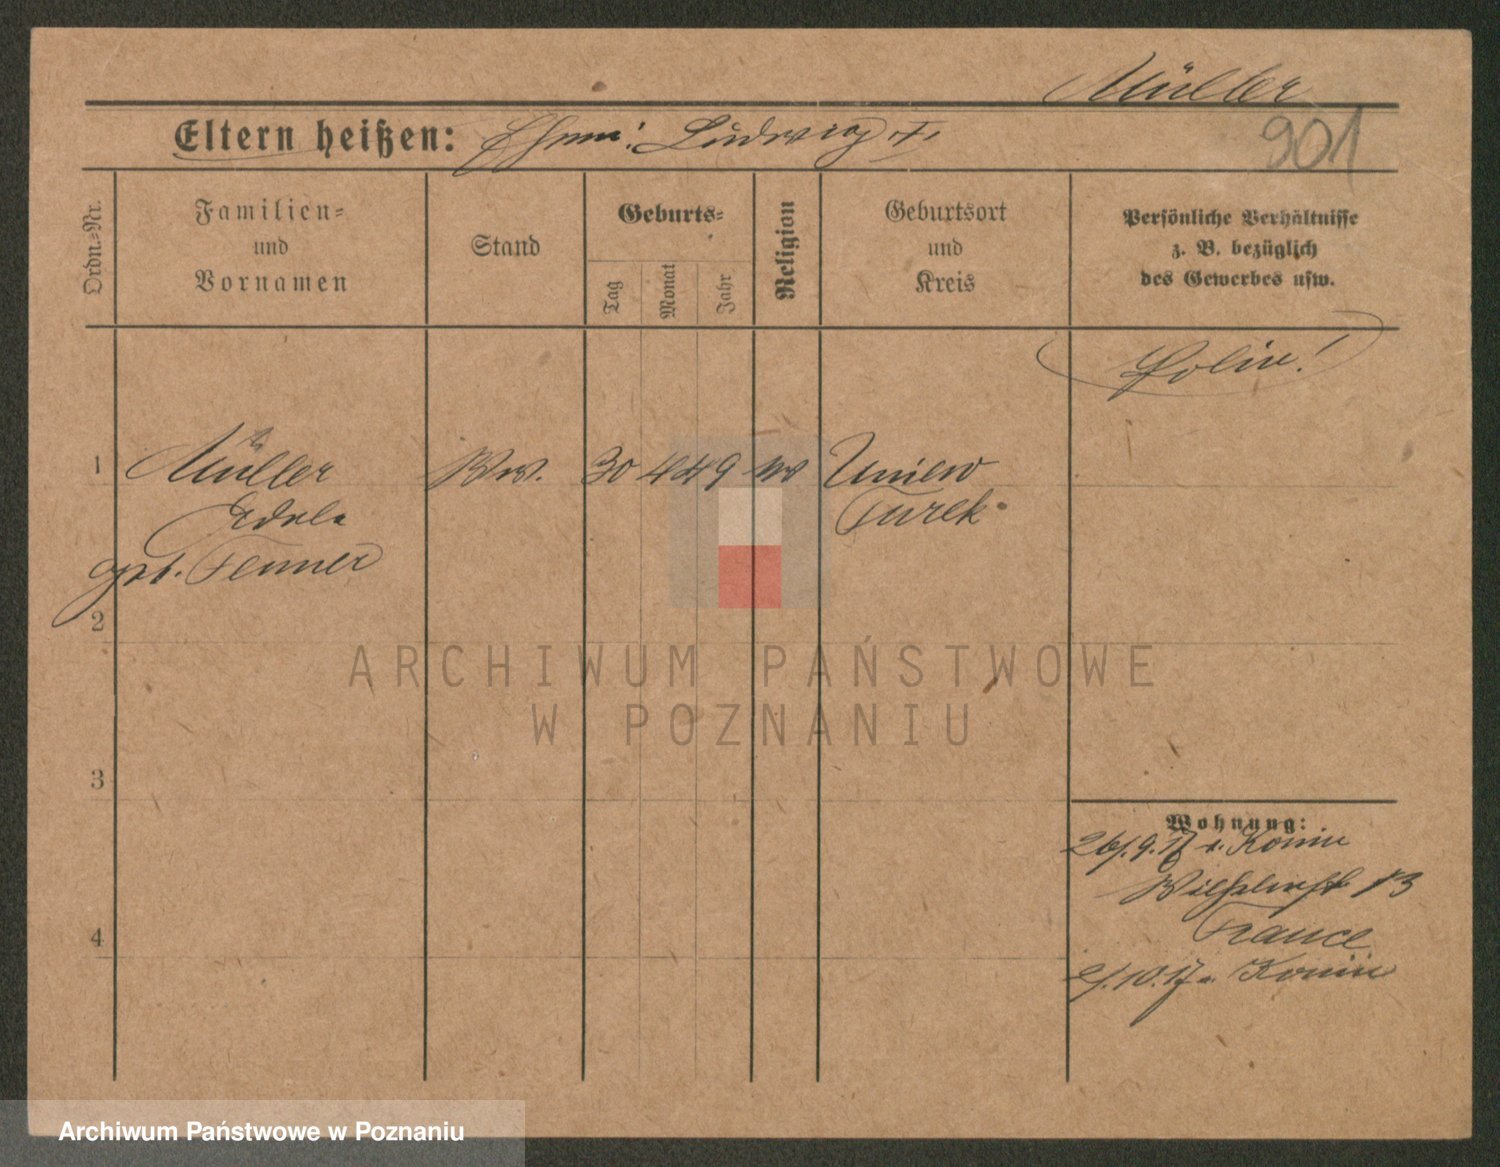 Müller
Eltern heißen: Ehem: Ludwig †.
901
Ordn.=Nr.
Familien=
und
Vornamen
Stand
Geburts=
Tag
Monat
Jahr
Religion
Geburtsort
und
Kreis
Persönliche Verhältnisse
z. B. bezüglich
des Gewerbes usw.
1 Müller Ww. 30 4 49 Uniew
Turek
geb. Tenner
2
3
4
Wohnung:
26/.9.17 v. Konin
13
France
Konin
ARCHIWUM PAŃSTWOWE
W POZNANIU
Archiwum Państwowe w Poznaniu